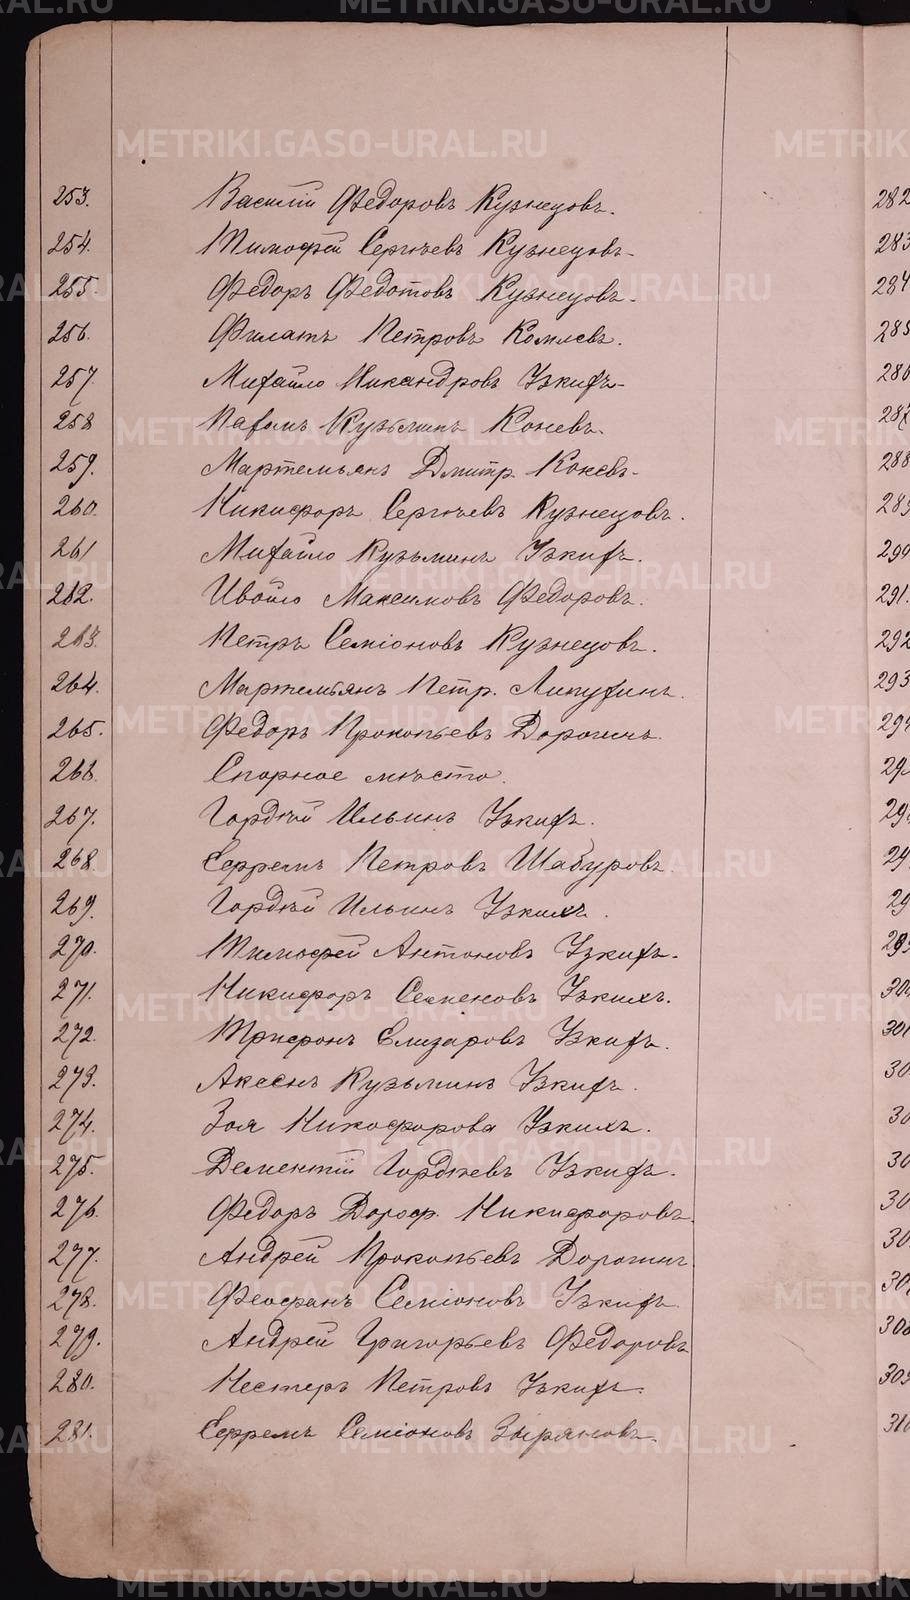 253. Василій Федоровъ Кузнецовъ.
254. Тимофей Сергѣевъ Кузнецовъ.
255. Федоръ Федотовъ Кузнецовъ.
256. Филатъ Петровъ Комлевъ.
257. Михайло Никандровъ Узкихъ.
258 Пахомъ Кузьминъ Коневъ.
259. Мартемьянъ Дмитр. Коневъ.
260. Никифоръ Сергѣевъ Кузнецовъ.
261 Михайло Кузьминъ Узкихъ.
262. Ивойло Максимовъ Федоровъ.
263. Петръ Семіоновъ Кузнецовъ.
264. Мартемьянъ Петр. Липухинъ.
265. Федоръ Прокопьевъ Дорогинъ.
266. Спорное мѣсто.
267. Гордѣй Ильинъ Узкихъ.
268. Ефремъ Петровъ Шабуровъ.
269. Гордѣй Ильинъ Узкихъ.
270. Тимофей Антоновъ Узкихъ.
271. Никифоръ Семеновъ Узкихъ.
272. Трифонъ Елизаровъ Узкихъ.
273. Аксенъ Кузьминъ Узкихъ.
274. Зоя Никофорова Узкихъ.
275. Дементій Гордѣевъ Узкихъ.
276. Федоръ Дороф. Никифоровъ.
277. Андрей Прокопьевъ Дорогинъ.
278. Феофанъ Семіоновъ Узкихъ.
279. Андрей Григорьевъ Федоровъ
280. Нестеръ Петровъ Узкихъ.
281. Ефремъ Семіоновъ Зыряновъ.
282
283
284
285
286
287
288
289
290
291.
292
293
METRIKI.GASO-URAL.RU